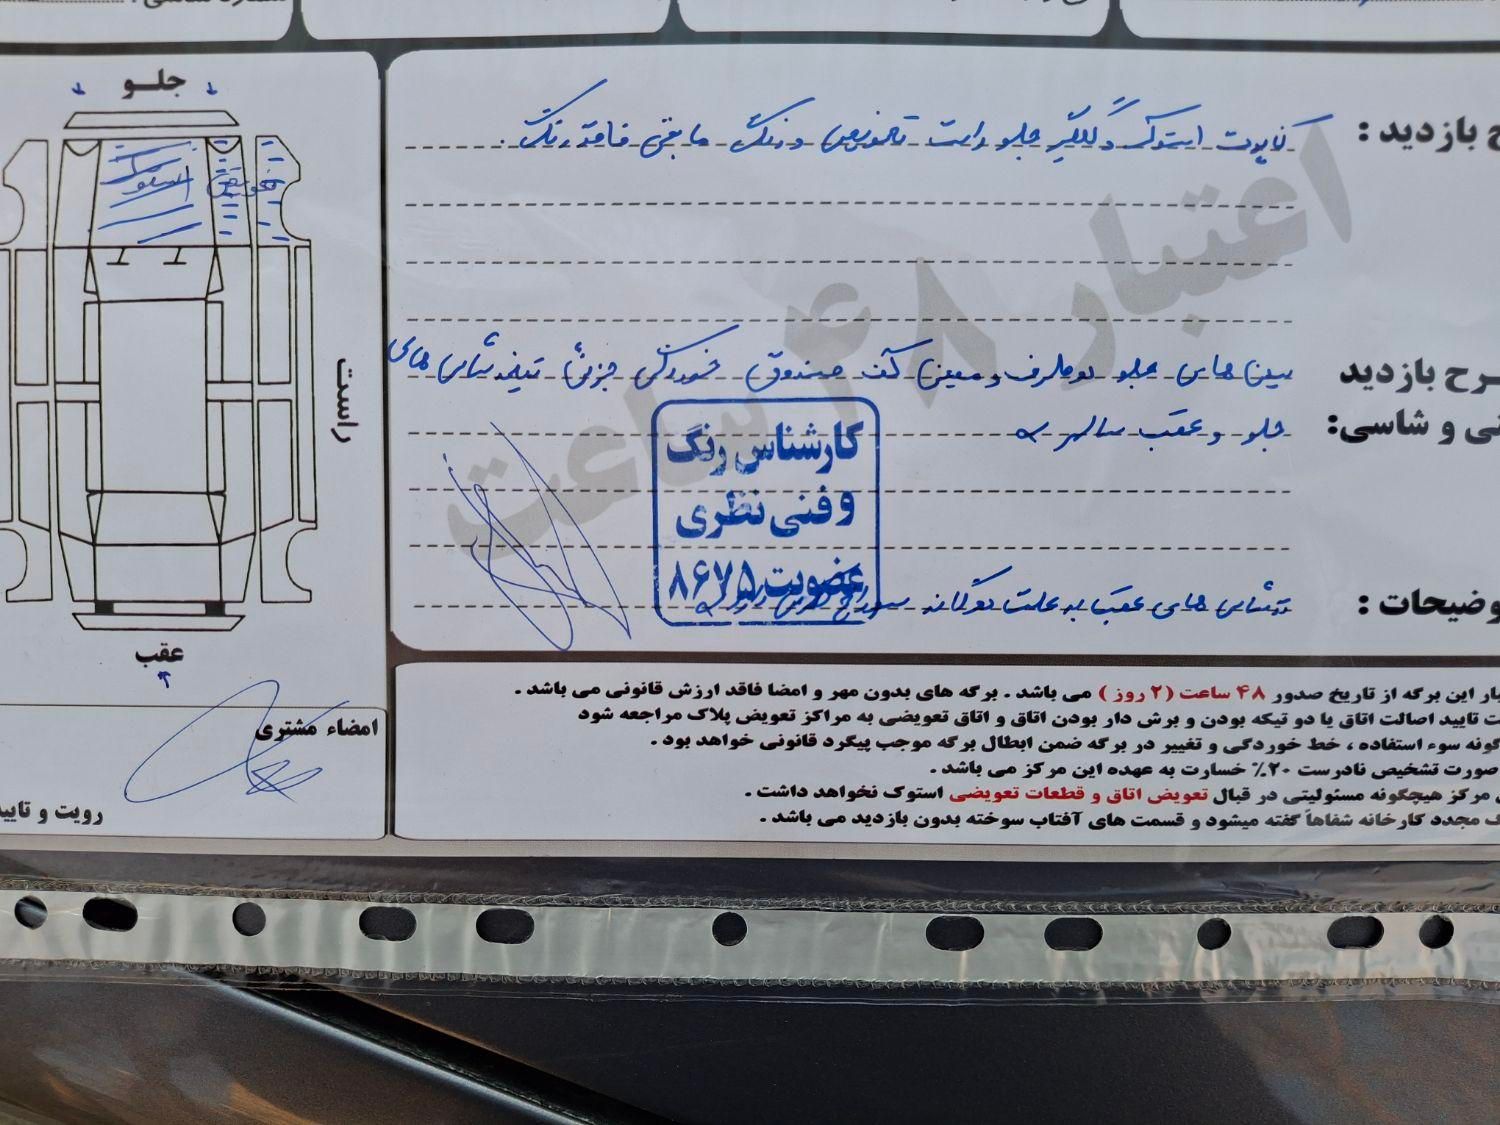 جلو
ح بازدید :
کاپوت استوک و گلگیر جلو راست تعویض و رنگ مابقی فاقد رنگ .
استوک
تعویض
اعتبار ۴۸ ساعت
راست
ـرح بازدید
نی و شاسی:
سینی های جلو دو طرف و سینی کف صندوق خوردگی جزئی شاسی های
جلو و عقب سالم
کارشناس رنگ
و فنی نظری
عضویت ۸۶۷۵
وضیحات :
شاسی های عقب به علت دوگانه سوراخ
عقب
امضاء مشتری
رویت و تایید
بار این برگه از تاریخ صدور ۴۸ ساعت (۲ روز ) می باشد . برگه های بدون مهر و امضا فاقد ارزش قانونی می باشد .
ت تایید اصالت اتاق یا دو تیکه بودن و برش دار بودن اتاق و اتاق تعویضی به مراکز تعویض پلاک مراجعه شود
گونه سوء استفاده ، خط خوردگی و تغییر در برگه ضمن ابطال برگه موجب پیگرد قانونی خواهد بود .
صورت تشخیص نادرست ۲۰٪ خسارت به عهده این مرکز می باشد .
ن مرکز هیچگونه مسئولیتی در قبال تعویض اتاق و قطعات تعویضی استوک نخواهد داشت .
گ مجدد کارخانه شفاهاً گفته میشود و قسمت های آفتاب سوخته بدون بازدید می باشد .